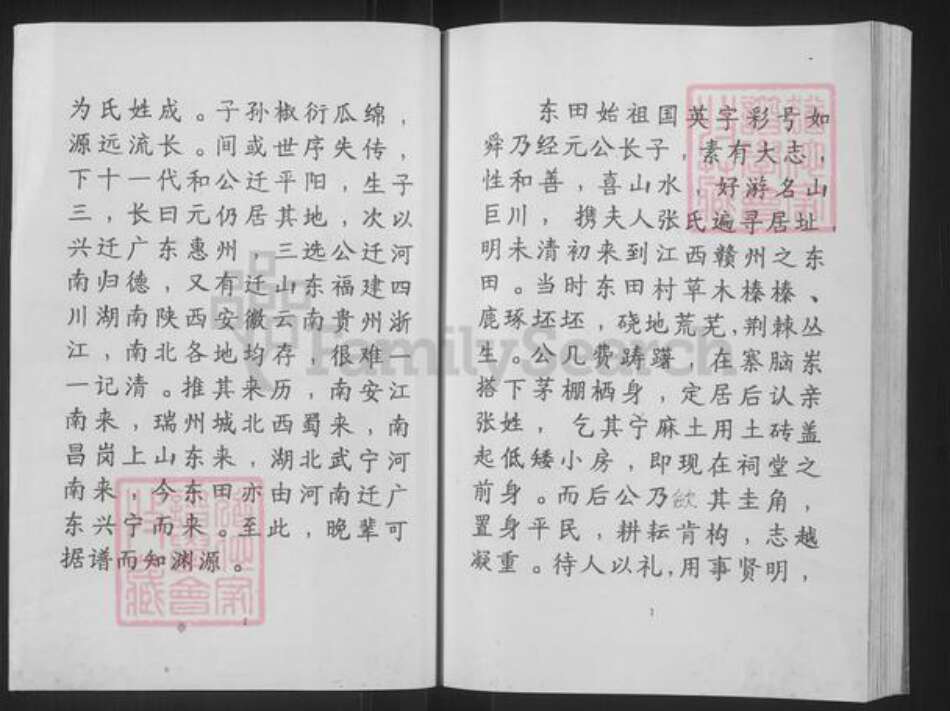 为氏姓成。子孙椒衍瓜绵，
源远流长。间或世序失传，
下十一代和公迁平阳，生子
三，长曰元仍居其地，次以
兴迁广东惠州，三选公迁河
南归德，又有迁山东福建四
川湖南陕西安徽云南贵州浙
江，南北各地均存，很难一
一记清。推其来历，南安江
南来，瑞州城北西蜀来，南
昌岗上山东来，湖北武宁河
南来，今东田亦由河南迁广
东兴宁而来。至此，晚辈可
据谱而知渊源。
东田始祖国英字彩号如
舜乃经元公长子，素有大志，
性和善，喜山水，好游名山
巨川，携夫人张氏遍寻居址，
明未清初来到江西赣州之东
田。当时东田村草木榛榛、
鹿琢坯坯，硗地荒芜，荆棘丛
生。公几费踌躇，在寨脑岽
搭下茅棚栖身，定居后认亲
张姓，乞其宁麻土用土砖盖
起低矮小房，即现在祠堂之
前身。而后公乃敛其圭角，
置身平民，耕耘肯构，志越
凝重。待人以礼，用事贤明，
FamilySearch